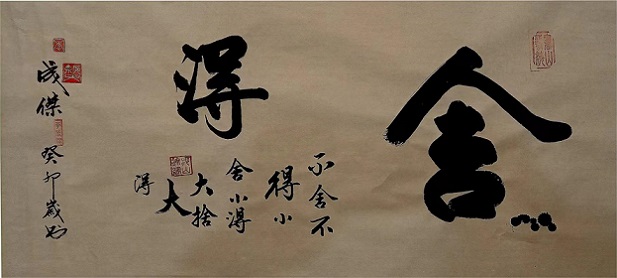 舍
得
不舍不
得小
舍小得
大捨
大
得
成傑
癸卯歲